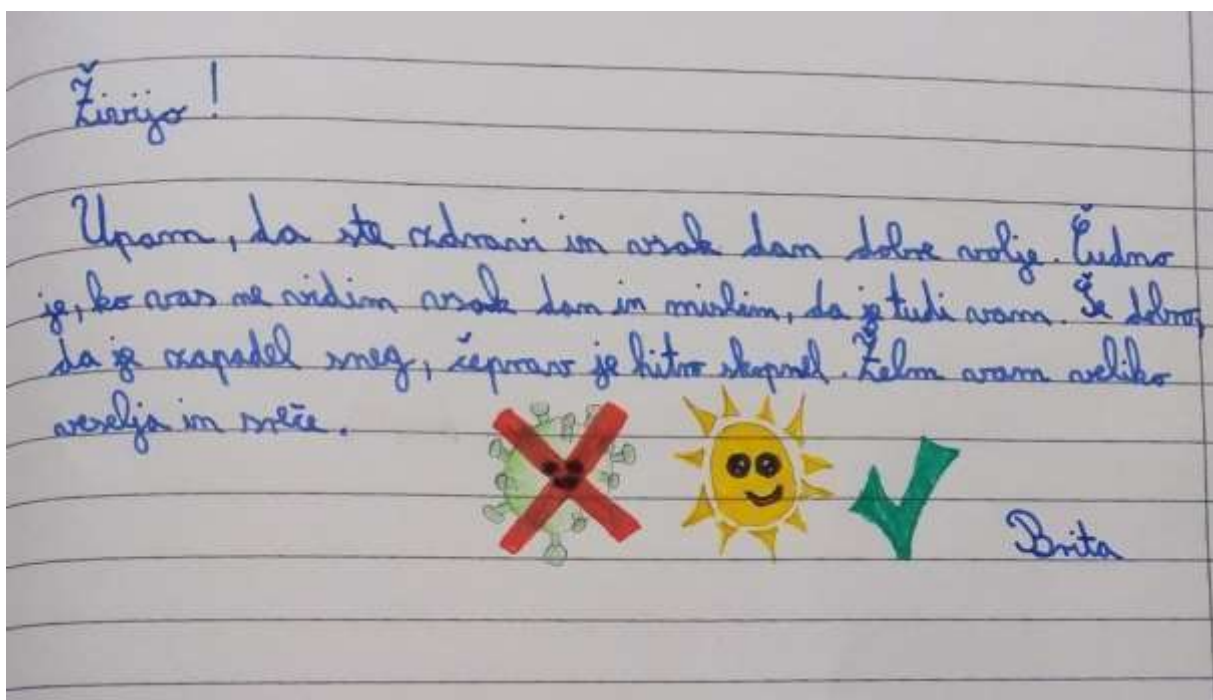 Živijo!
Upam, da ste zdravi in vsak dan dobre volje. Čudno
je, ko vas ne vidim vsak dan in mislim, da je tudi vam. Še dobro,
da je zapadel sneg, čeprav je hitro skopnel. Želm vam veliko
veselja in sreče.
Brita